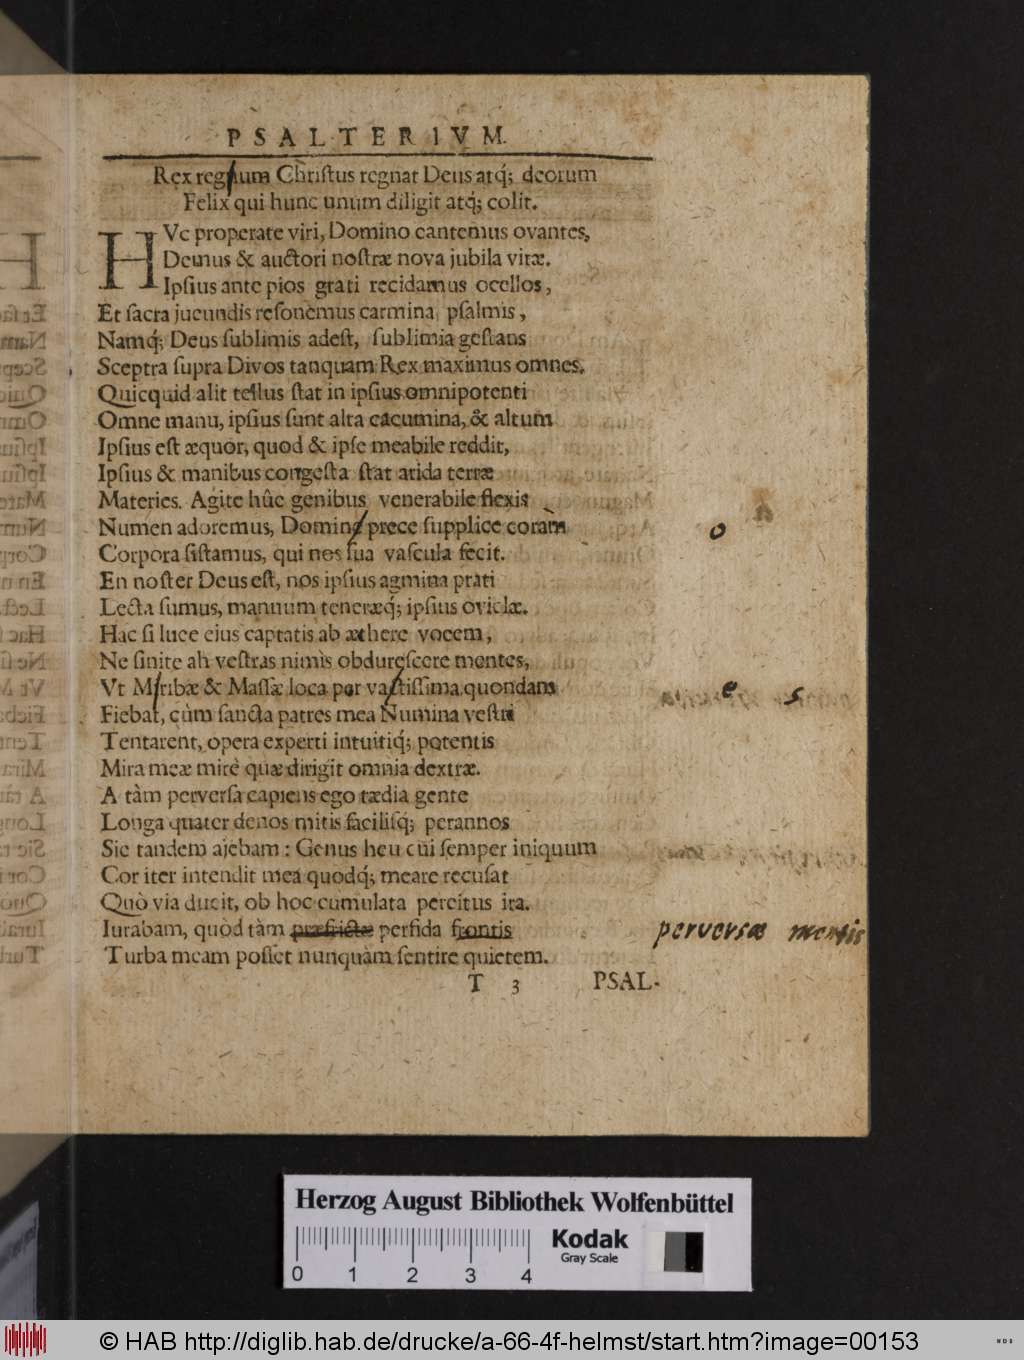 PSALTERIVM.
Rex regnum Chriſtus regnat Deus atq́; deorum
Felix qui hunc unum diligit atq́; colit.
HVc properate viri, Domino cantemus ovantes,
Demus & auctori noſtræ nova jubila vitæ.
Ipſius ante pios grati recidamus ocellos,
Et ſacra jucundis reſonemus carmina pſalmis,
Namq́; Deus ſublimis adeſt, ſublimia geſtans
Sceptra ſupra Divos tanquam Rex maximus omnes.
Quicquid alit tellus ſtat in ipſius omnipotenti
Omne manu, ipſius ſunt alta cacumina, & altum
Ipſius eſt æquor, quod & ipſe meabile reddit,
Ipſius & manibus congeſta ſtat arida terræ
Materies. Agite hûc genibus venerabile flexis
Numen adoremus, Domine prece ſupplice coràm
o
Corpora ſiſtamus, qui nos ſua vaſcula fecit.
En noſter Deus eſt, nos ipſius agmina prati
Lecta ſumus, manuum teneræq́; ipſius oviclæ.
Hac ſi luce eius captatis ab æthere vocem,
Ne ſinite ah veſtras nimis obdureſcere mentes,
Vt Miribæ & Maſſæ loca per vaſtiſſima quondam
e s
Fiebat, cùm ſancta patres mea Numina veſtri
Tentarent, opera experti intuitiq́; potentis
Mira meæ mirè quæ dirigit omnia dextræ.
A tàm perverſa capiens ego tædia gente
Longa quater denos mitis faciliſq́; perannos
Sic tandem ajebam: Genus heu cui ſemper iniquum
Cor iter intendit mea quodq́; meare recuſat
Quò via ducit, ob hoc cumulata percitus ira.
Iurabam, quòd tàm præfrictæ perfida frontis perversæ mentis
Turba meam poſſet nunquàm ſentire quietem.
T 3 PSAL-
Herzog August Bibliothek Wolfenbüttel
Kodak
Gray Scale
0 1 2 3 4
© HAB http://diglib.hab.de/drucke/a-66-4f-helmst/start.htm?image=00153